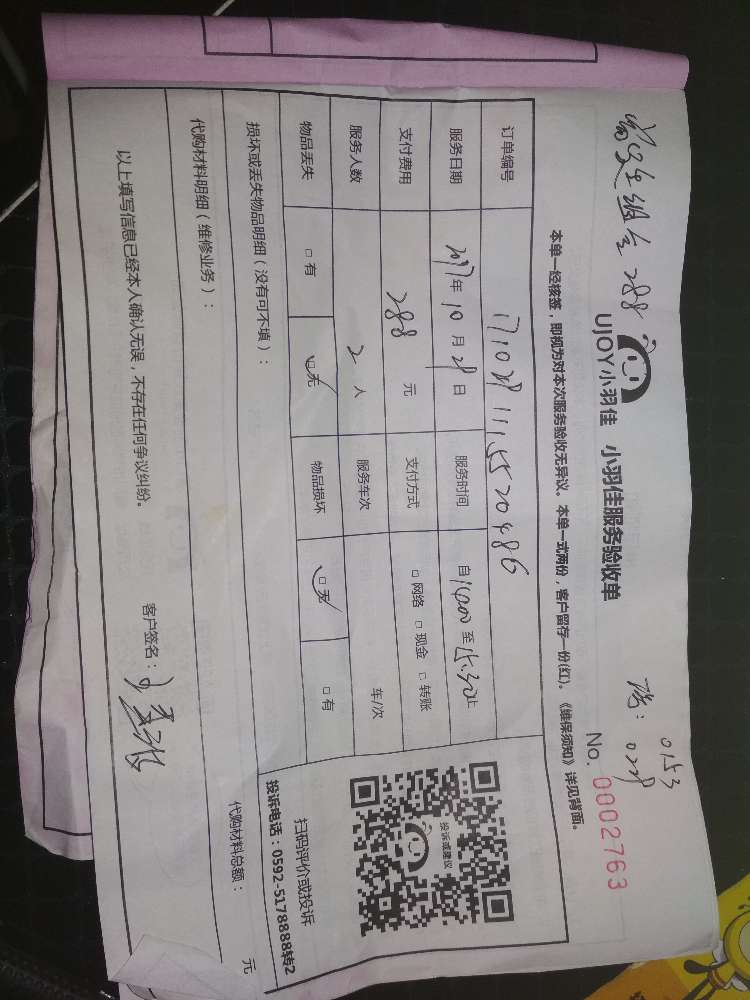 288
0153
0228
UJOY小羽佳 小羽佳服务验收单
No. 0002763
本单一经核签，即视为对本次服务验收无异议。本单一式两份，客户留存一份(红)。《维保须知》详见背面。
订单编号
服务日期 2017年 10 月 28 日 服务时间 自14:00 至 15:30止
支付费用 288 元 支付方式 □ 网络 □ 现金 □ 转账
服务人数 2 人 服务车次 车/次
物品丢失 □ 有 □ 无 物品损坏 □ 无 □ 有
损坏或丢失物品明细（没有可不填）：
代购材料明细（维修业务）：
代购材料总额： 元
以上填写信息已经本人确认无误，不存在任何争议纠纷。
客户签名：
投诉或建议
扫码评价或投诉
投诉电话：0592-5178888转2